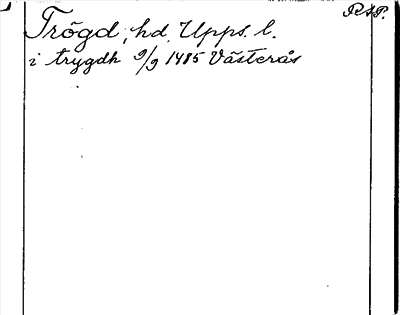 RAP.
Trögd, hd. Upps. l.
i trygdh 9/9 1485 Västerås